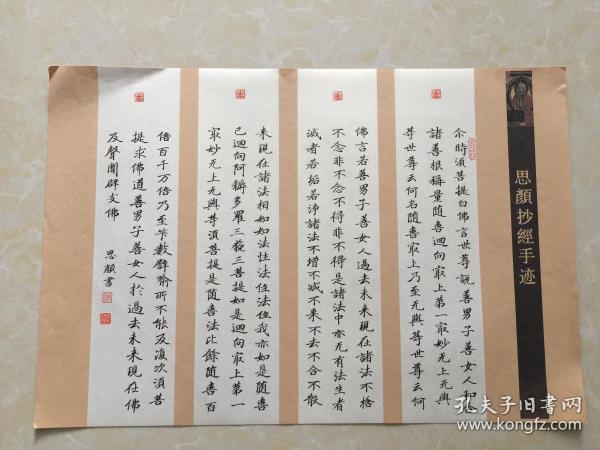 思顏抄經手迹
尒時須菩提白佛言世尊說善男子善女人和
諸善根稱量随喜迴向寂上第一寂妙无上无與
等世尊云何名随喜寂上乃至无與等世尊云何
佛言若善男子善女人過去未来現在諸法不捨
不念非不念不得非不得是諸法中亦无有法生者
滅者若垢若淨諸法不增不減不来不去不合不散
未来現在諸法相如如法性法住法位我亦如是随喜
已迴向阿耨多羅三藐三菩提如是迴向寂上第一
寂妙无上无與等須菩提是随喜法比餘随喜百
倍百千万倍乃至竿數譬喻所不能及復次須菩
提求佛道善男子善女人於過去未来現在佛
及聲聞辟支佛
思顏書
孔夫子旧書网
www.kongfz.com